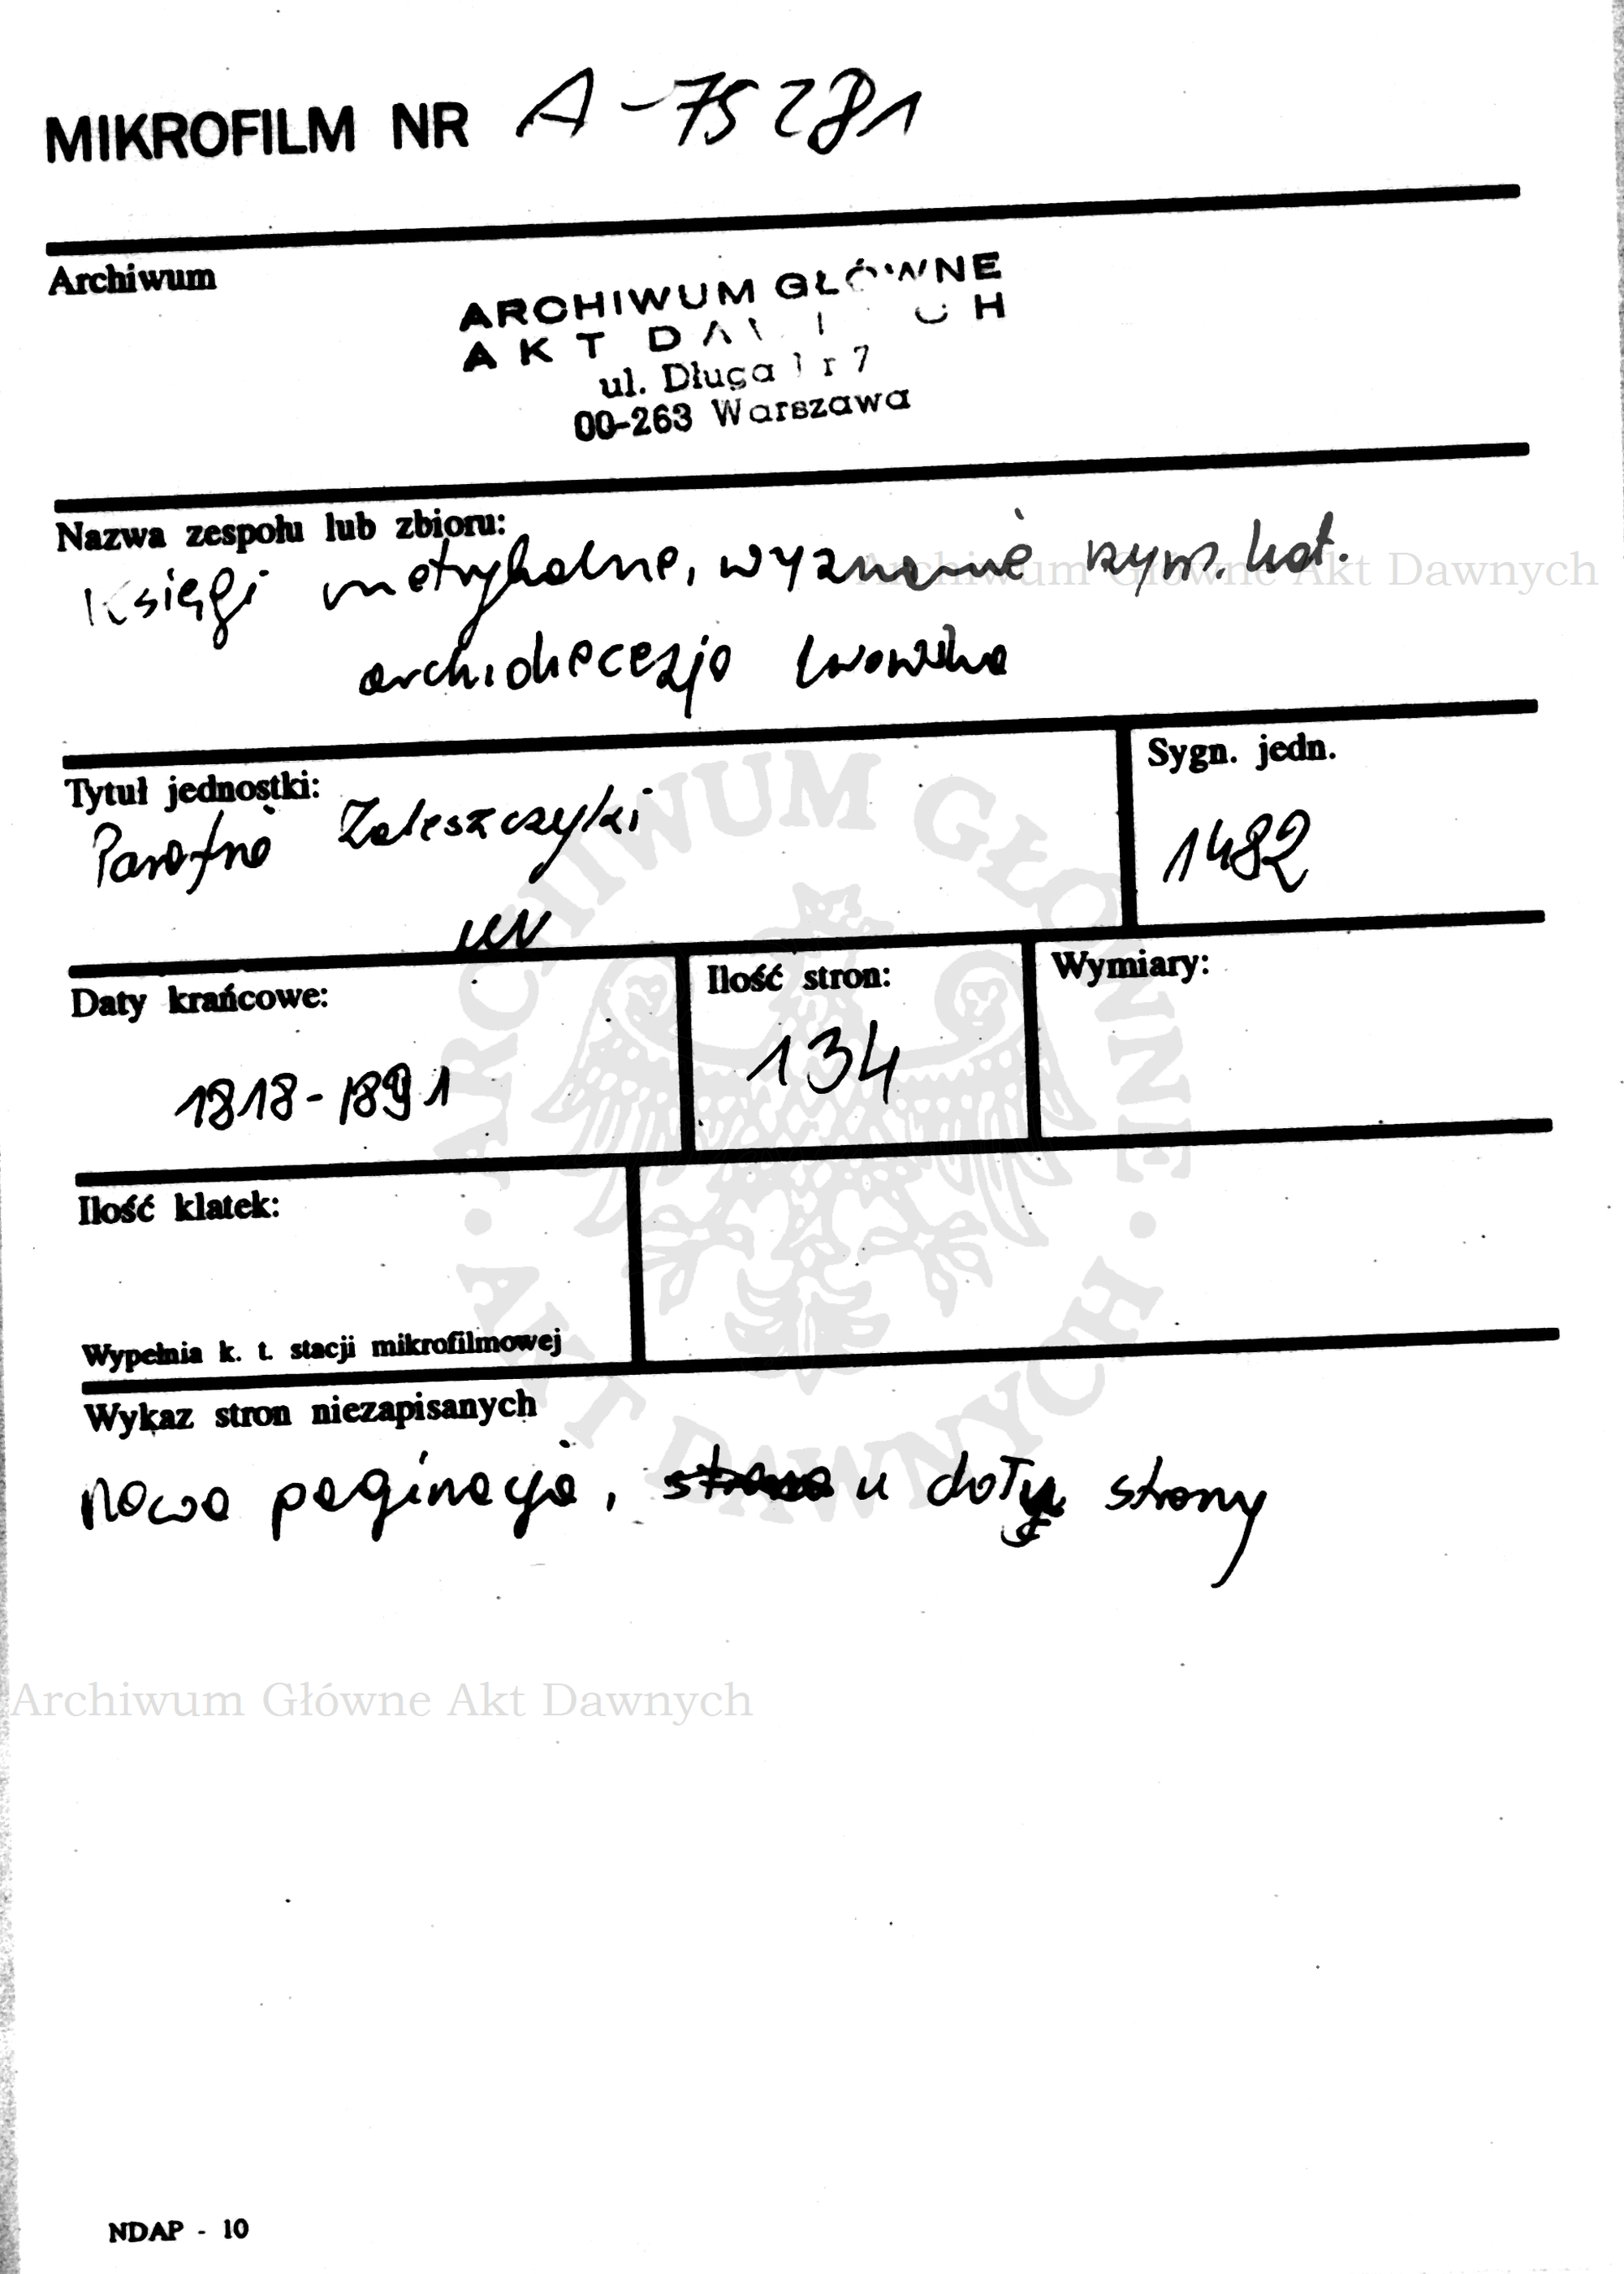 MIKROFILM NR A-75281
Archiwum
ARCHIWUM GŁÓWNE
AKT DAWNYCH
ul. Długa nr 7
00-263 Warszawa
Nazwa zespołu lub zbioru:
Księgi metrykalne, wyznanie rzym. kat.
Archiwum Główne Akt Dawnych
archidiecezja lwowska
Tytuł jednostki:
Parafia Zaleszczyki
Sygn. jedn.
1482
Daty krańcowe:
1818-1891
Ilość stron:
134
Wymiary:
Ilość klatek:
Wypełnia k. t. stacji mikrofilmowej
ARCHIWUM GŁÓWNE · AKT DAWNYCH ·
Wykaz stron niezapisanych
nowa paginacja, u dołu strony
Archiwum Główne Akt Dawnych
NDAP - 10